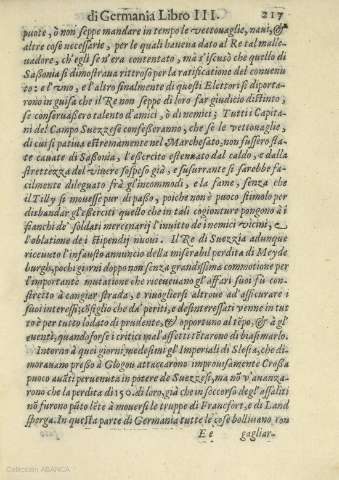 di Germania Libro III. 217
puote, ò non seppe mandare in tempo le vettouaglie, naui, &
altre cose necessarie, per le quali haueua dato al Re tal malle-
uadore, ch'egli se n'era contentato, mà s'iscusò che quello di
Sassonia si dimostraua ritroso per la ratificatione del conuenu
to: e l'vno, e l'altro finalmente di questi Elettori si diporta-
rono in guisa che il Re non seppe di loro far giudicio distinto,
se conseruassero talento d'amici, ò di nemici; Tutti i Capita-
ni del Campo Suezzese confesseranno, che se le vettouaglie,
di cui si patiua estremamente nel Marchesato, non fussero sta-
te cauate di Sassonia, l'essercito estenuato dal caldo, e dalla
strettezza del viuere sospeso già, e susurrante si sarebbe fa-
cilmente dileguato frà gl'incommodi, e la fame, senza che
il Tilly si mouesse pur di passo, poiche non è puoco stimolo per
disbandar gl'esserciti quello che in tali cogionture pongono à i
fianchi de' soldati mercenarij l'inuito de inemici vicini, e
l'oblatione de i stipendij nuoui. Il Re di Suezzia adunque
riceuuto l'infausto annuncio della miserabil perdita di Meyde
burgh, pochi giorni doppo non senza grandissima commotione per
l'importante mutatione che riceueuano gl'affari suoi fù con-
stretto à cangiar strada, e riuoglersi altroue ad assicurare i
suoi interessi; cõsiglio che da' periti, e desinteressati venne in tut
to è per tutto lodato di prudente, & opportuno al tẽpo, & à gl'
euenti, quando forse i critici mal affetti tẽtarono di biasimarlo.
Intorno à quei giorni medesimi gl'Imperiali di Slesia, che di-
morauano presso à Glogou attaccarono improuisamente Crossa
puoco auãti peruenuta in potere de Suezzesi, ma nõ v'auanza-
rono che la perdita di 150. di loro, già che in soccorso degl'assaliti
nõ furono pũto lẽte à mouersi le truppe di Francfort, e di Land
sperga. In questa parte di Germania tutte le cose bolliuano, con
E e gagliar-
Colección ABANCA